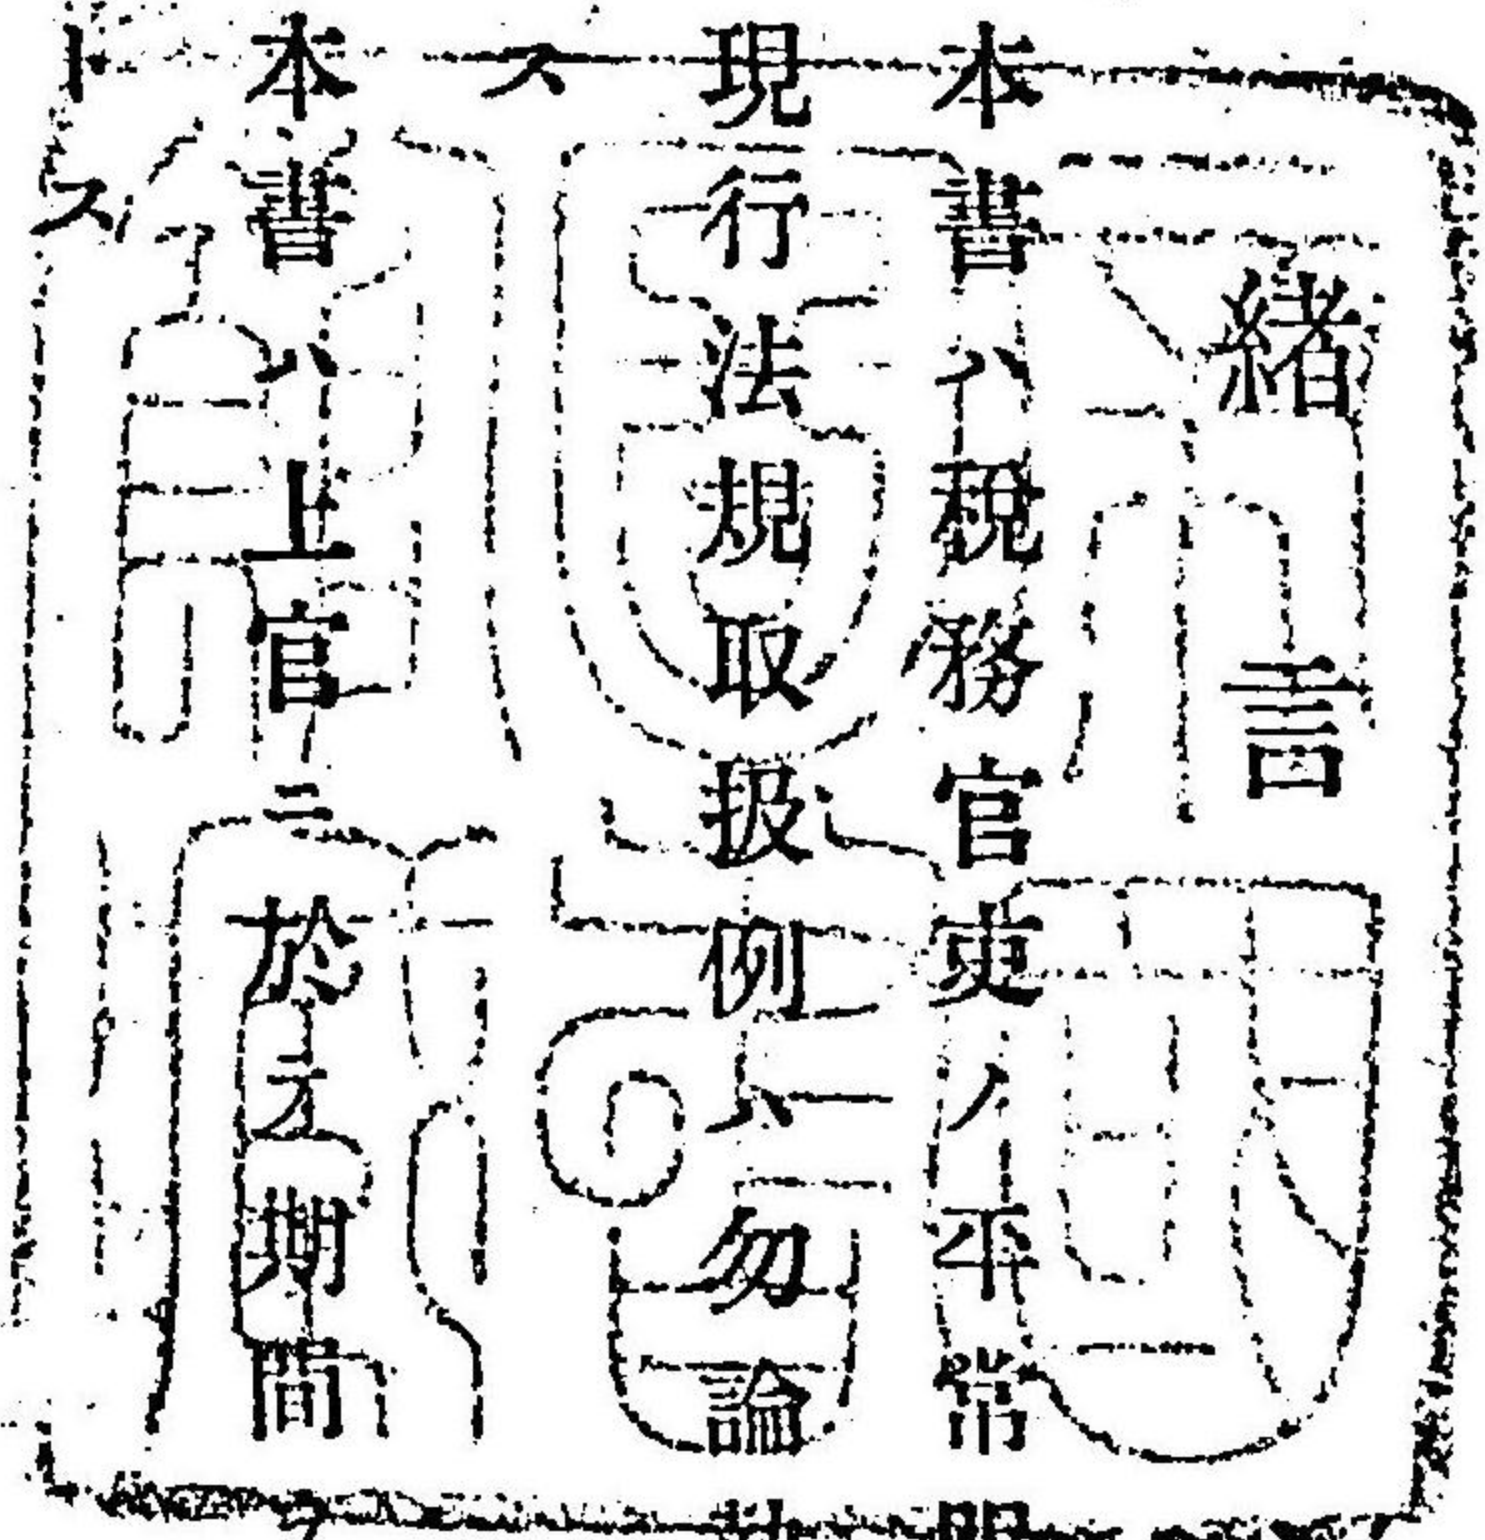 緒言
本書ハ税務官吏ノ平常
現行法規取扱例ハ勿論
ス
本書ハ上官ニ於テ期間
トス